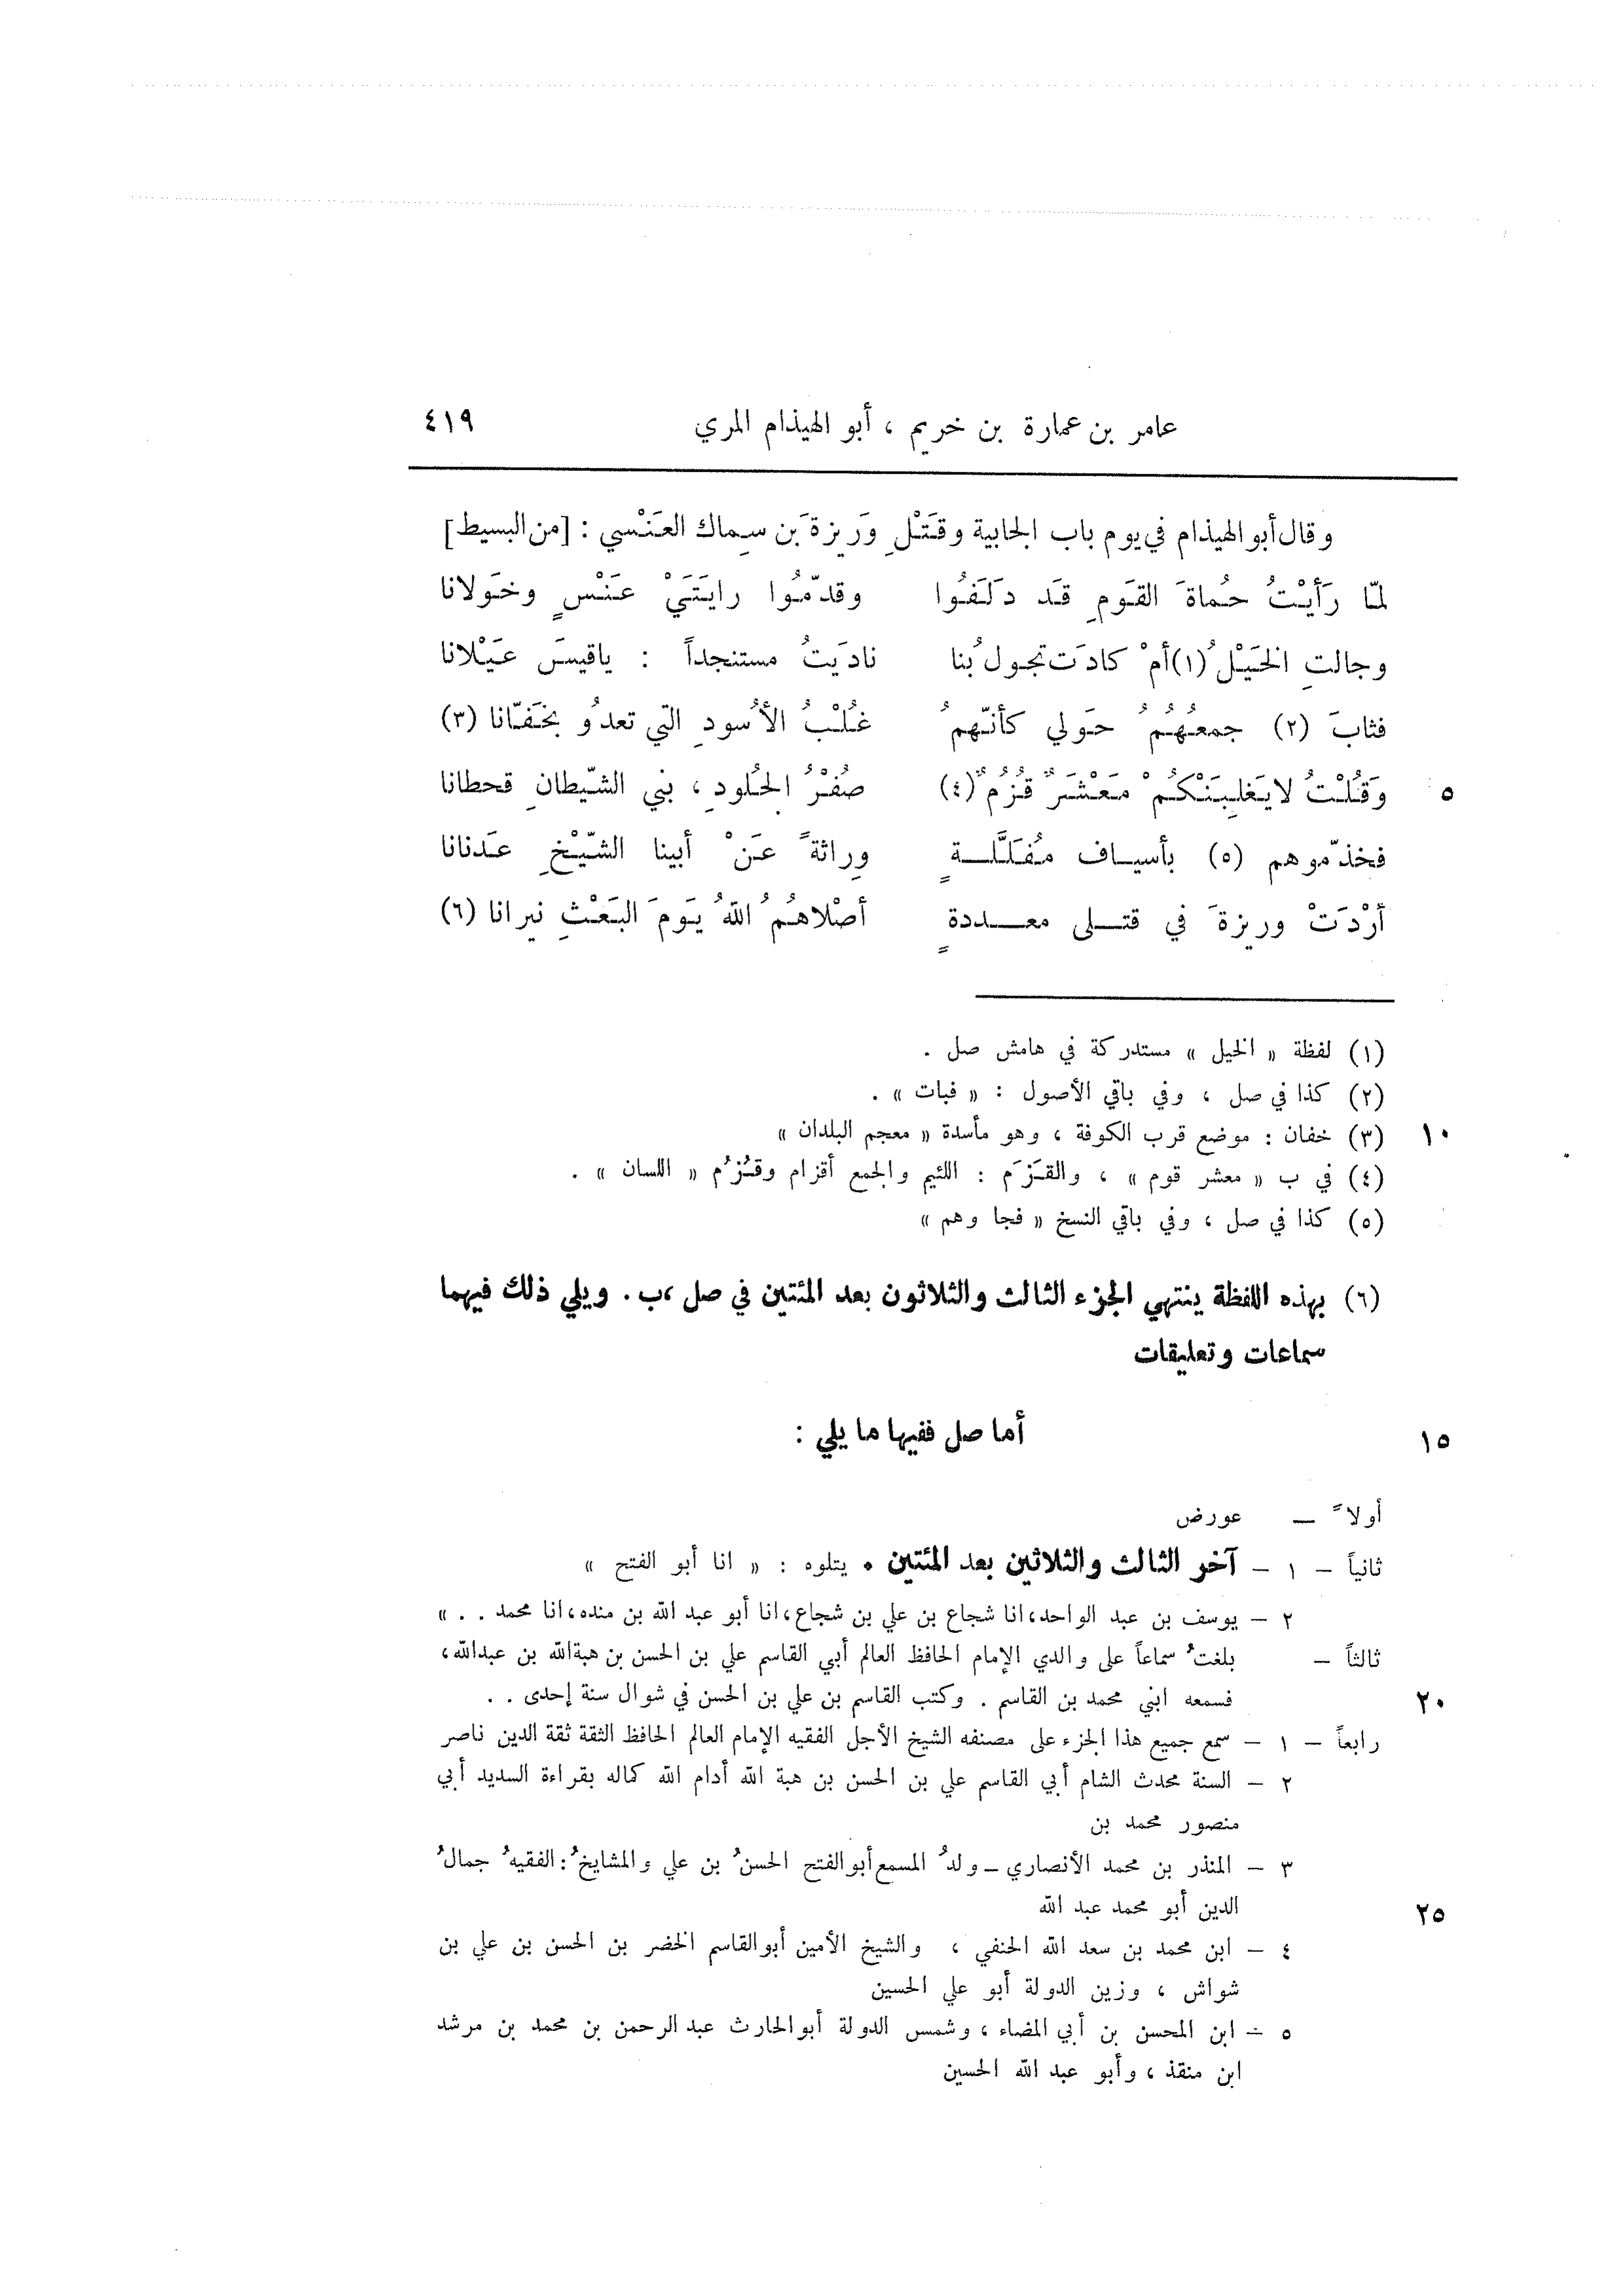 عامر بن عمارة بن خريم ، أبو الهيذام المري ٤١٩
وقال أبو الهيذام في يوم باب الجابية وقَتْلِ وَريزةَ بن سِماك العَنْسي : [من البسيط]
لمّا رَأَيْتُ حُماةَ القَومِ قَد دَلَفُوا وقدّمُوا رايَتَيْ عَنْسٍ وخَولانا
وجالتِ الخَيْلُ (١) أمْ كادَت تجولُ بُنا نادَيتُ مستنجداً : ياقيسَ عَيْلانا
فثابَ (٢) جمعُهُمُ حَولي كأنّهمُ غُلْبُ الأُسودِ التي تعدُو بخَفّانا (٣)
٥ وَقُلْتُ لايَغلِبَنْكُمْ مَعْشَرٌ قُزُمٌ (٤) صُفْرُ الجُلودِ ، بني الشّيطانِ قحطانا
فخذّموهم (٥) بأسياف مُفَلَّلةٍ وِراثةً عَنْ أبينا الشّيْخِ عَدنانا
أرْدَتْ وريزةَ في قتلى معددةٍ أصْلاهُمُ اللهُ يَومَ البَعْثِ نيرانا (٦)
(١) لفظة « الخيل » مستدركة في هامش صل .
(٢) كذا في صل ، وفي باقي الأصول : « فبات » .
١٠ (٣) خفان : موضع قرب الكوفة ، وهو مأسدة « معجم البلدان »
(٤) في ب « معشر قوم » ، والقَزَم : اللئيم والجمع أقزام وقُزُم « اللسان » .
(٥) كذا في صل ، وفي باقي النسخ « فجا وهم »
(٦) بهذه اللفظة ينتهي الجزء الثالث والثلاثون بعد المئتين في صل ،ب . ويلي ذلك فيهما
سماعات وتعليقات
١٥ أما صل ففيها ما يلي :
أولاً — عورض
ثانياً – ١ – آخر الثالث والثلاثين بعد المئتين . يتلوه : « انا أبو الفتح »
٢ – يوسف بن عبد الواحد ،انا شجاع بن علي بن شجاع ،انا أبو عبد الله بن منده ،انا محمد . . »
ثالثاً – بلغتُ سماعاً على والدي الإمام الحافظ العالم أبي القاسم علي بن الحسن بن هبةالله بن عبدالله ،
٢٠ فسمعه ابني محمد بن القاسم . وكتب القاسم بن علي بن الحسن في شوال سنة إحدى . .
رابعاً – ١ – سمع جميع هذا الجزء على مصنفه الشيخ الأجل الفقيه الإمام العالم الحافظ الثقة ثقة الدين ناصر
٢ – السنة محدث الشام أبي القاسم علي بن الحسن بن هبة الله أدام الله كماله بقراءة السديد أبي
منصور محمد بن
٣ – المنذر بن محمد الأنصاري – ولدُ المسمع أبوالفتح الحسنُ بن علي والمشايخُ : الفقيهُ جمالُ
٢٥ الدين أبو محمد عبد الله
٤ – ابن محمد بن سعد الله الحنفي ، والشيخ الأمين أبوالقاسم الخضر بن الحسن بن علي بن
شواش ، وزين الدولة أبو علي الحسين
٥ – ابن المحسن بن أبي المضاء ، وشمس الدولة أبوالحارث عبد الرحمن بن محمد بن مرشد
ابن منقذ ، وأبو عبد الله الحسين